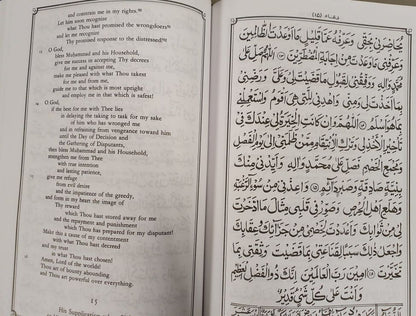 and constrain me in my rights.
Let him soon recognise
what Thou hast promised the wrongdoers
and let me recognise
Thy promised response to the distressed!
O God,
bless Muhammad and his Household,
give me success in accepting Thy decrees
for me and against me,
make me pleased with what Thou takest
for me and from me,
guide me to that which is most upright
and employ me in that which is safest!
O God,
if the best for me with Thee lies
in delaying the taking to task for my sake
of him who has wronged me
and in refraining from vengeance toward him
until the Day of Decision and
the Gathering of Disputants,
then bless Muhammad and his Household,
strengthen me from Thee
with true intention
and lasting patience,
give me refuge
from evil desire
and the impatience of the greedy,
and form in my heart the image of
Thy reward
which Thou hast stored away for me
and the repayment and punishment
which Thou has prepared for my disputant!
Make this a cause of my contentment
with what Thou hast decreed
and my trust
in what Thou hast chosen!
Amen, Lord of the worlds!
Thou art of bounty abounding,
and Thou art powerful over everything.
15
His Supplication
يُحَاضِرُنِي بِحَقِّي وَعَرِّفْهُ عَمَّا أَوْعَدْتَ الظَّالِمِينَ
وَعَرِّفْنِي مَا وَعَدْتَ مِنْ إِجَابَةِ الْمُضْطَرِّينَ اللَّهُمَّ صَلِّ عَلَى
مُحَمَّدٍ وَآلِهِ وَوَفِّقْنِي لِقَبُولِ مَا قَضَيْتَ لِي وَعَلَيَّ وَرَضِّنِي
بِمَا أَخَذْتَ لِي وَمِنِّي وَاهْدِنِي لِلَّتِي هِيَ أَقْوَمُ وَاسْتَعْمِلْنِي
بِمَا هُوَ أَسْلَمُ اللَّهُمَّ وَإِنْ كَانَتِ الْخِيَرَةُ لِي عِنْدَكَ فِي
تَأْخِيرِ الْأَخْذِ لِي وَتَرْكِ الِانْتِقَامِ مِمَّنْ ظَلَمَنِي إِلَى يَوْمِ الْفَصْلِ
وَمَجْمَعِ الْخَصْمِ فَصَلِّ عَلَى مُحَمَّدٍ وَآلِهِ وَأَيِّدْنِي مِنْكَ
بِنِيَّةٍ صَادِقَةٍ وَصَبْرٍ دَائِمٍ وَأَعِذْنِي مِنْ سُوءِ الرَّغْبَةِ
وَهَلَعِ أَهْلِ الْحِرْصِ وَصَوِّرْ فِي قَلْبِي مِثَالَ مَا ادَّخَرْتَ
لِي مِنْ ثَوَابِكَ وَأَعْدَدْتَ لِخَصْمِي مِنْ جَزَائِكَ وَعِقَابِكَ
وَاجْعَلْ ذَلِكَ سَبَبًا لِقَنَاعَتِي بِمَا قَضَيْتَ وَثِقَتِي بِمَا
تَخَيَّرْتَ آمِينَ رَبَّ الْعَالَمِينَ إِنَّكَ ذُو الْفَضْلِ الْعَظِيمِ
وَأَنْتَ عَلَى كُلِّ شَيْءٍ قَدِيرٌ